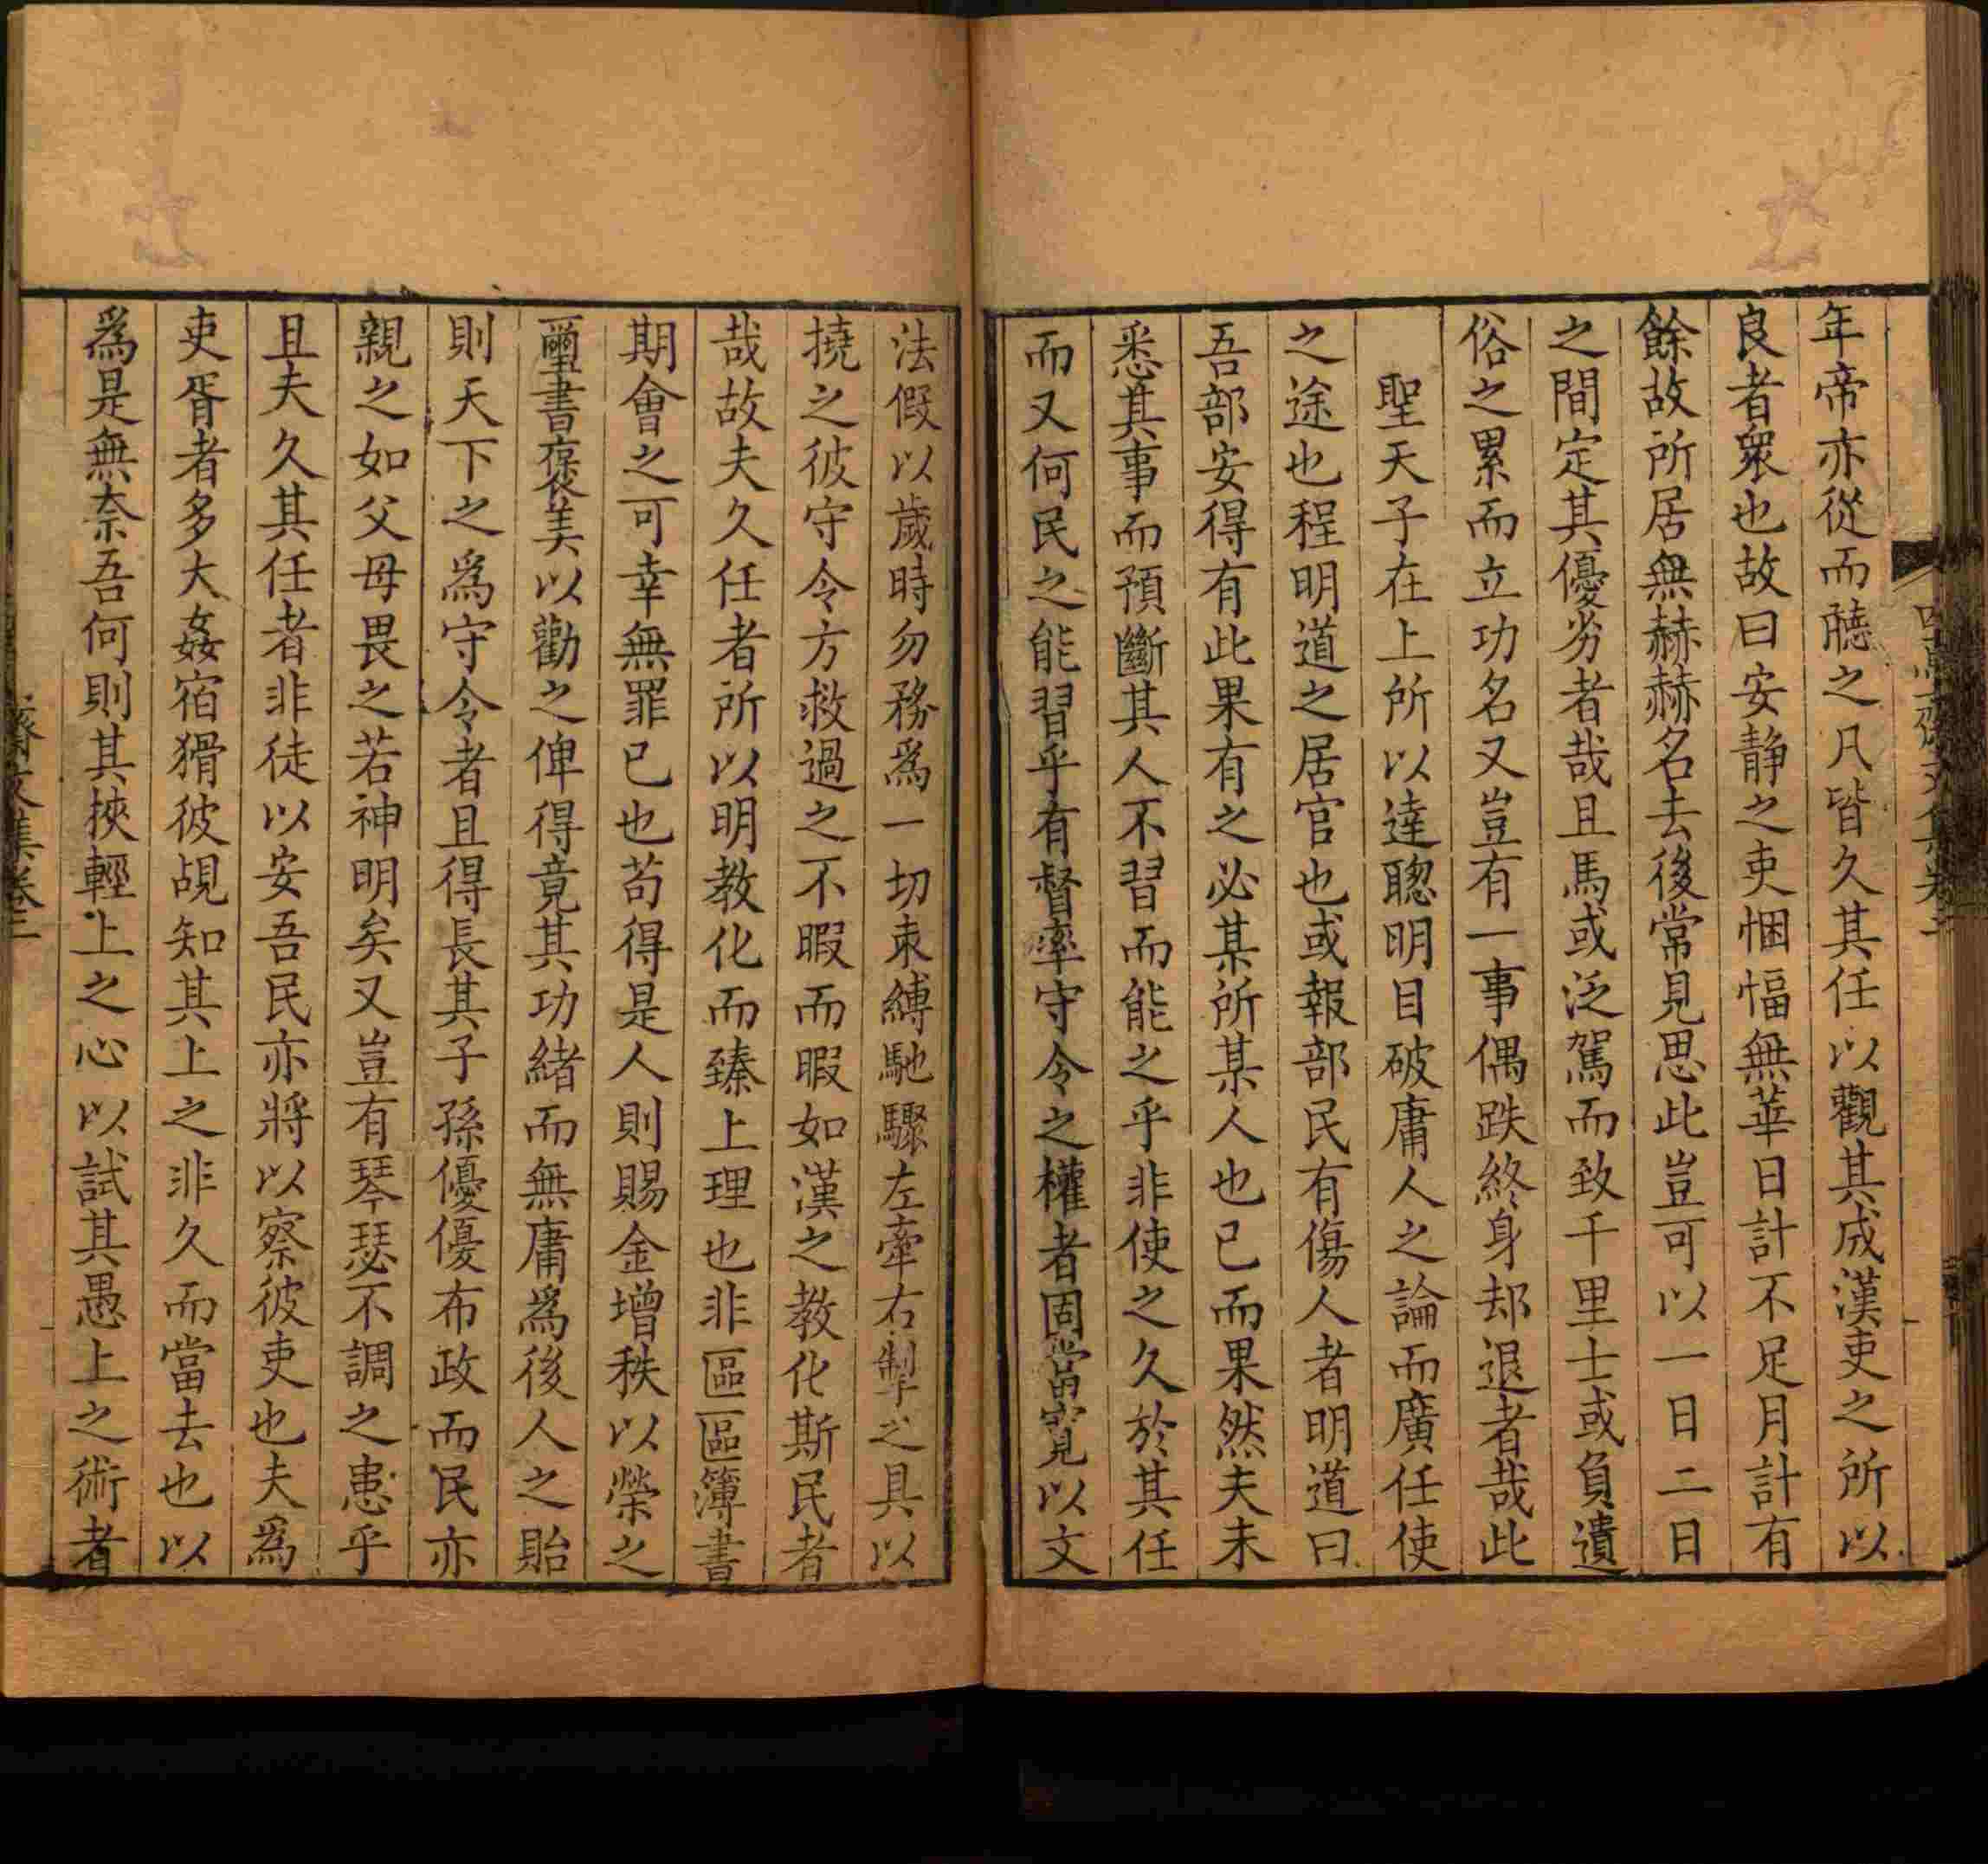 年帝亦從而聽之凡皆久其任以觀其成漢吏之所以
良者衆也故曰安静之吏悃愊無華日計不足月計有
餘故所居無赫赫名去後常見思此豈可以一日二日
之間定其優劣者哉且馬或泛駕而致千里士或負遺
俗之累而立功名又豈有一事偶跌終身却退者哉此
聖天子在上所以達聰明目破庸人之論而廣任使
之途也程明道之居官也或報部民有傷人者明道曰
吾部安得有此果有之必某所某人也已而果然夫未
悉其事而預斷其人不習而能之乎非使之久於其任
而又何民之能習乎有督率守令之權者固當寬以文
法假以歲時勿務爲一切束縛馳驟左牽右掣之具以
撓之彼守令方救過之不暇而暇如漢之教化斯民者
哉故夫久任者所以明教化而臻上理也非區區簿書
期會之可幸無罪已也苟得是人則賜金增秩以榮之
璽書褒美以勸之俾得竟其功緒而無庸爲後人之貽
則天下之爲守令者且得長其子孫優優布政而民亦
親之如父母畏之若神明矣又豈有琴瑟不調之患乎
且夫久其任者非徒以安吾民亦將以察彼吏也夫爲
吏胥者多大姦宿猾彼覘知其上之非久而當去也以
爲是無奈吾何則其挾輕上之心以試其愚上之術者
齋文集卷三